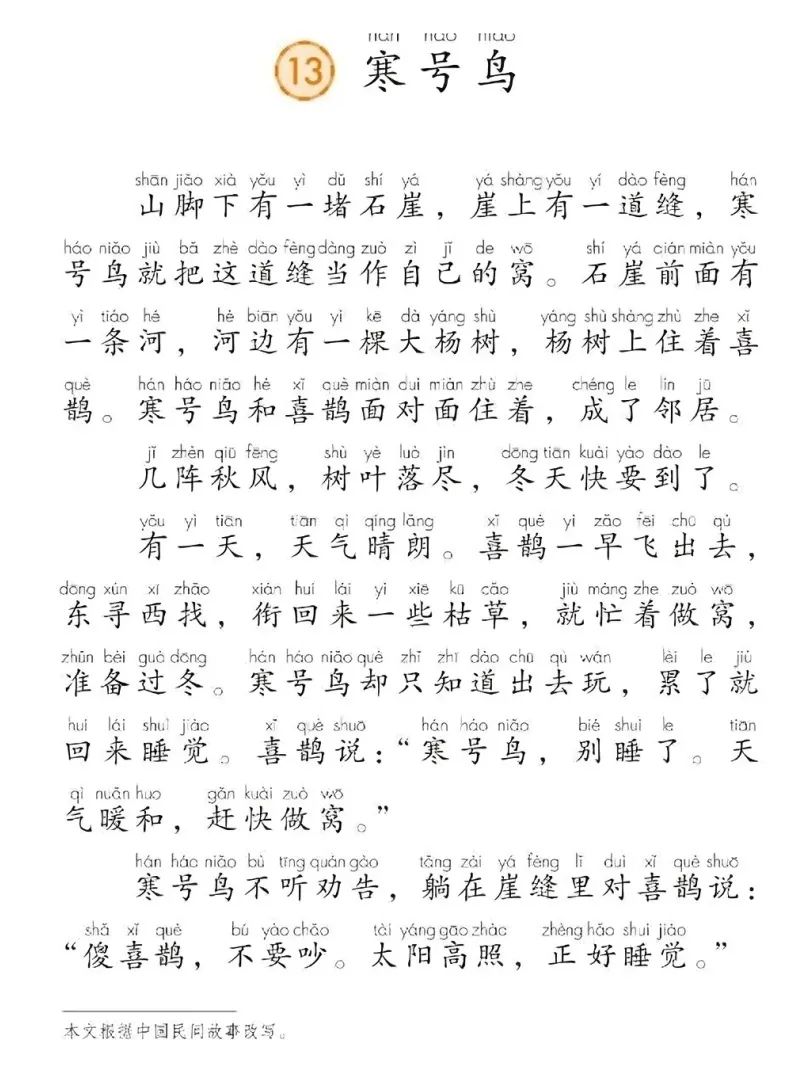 hán háo niǎo
13 寒号鸟
shān jiǎo xià yǒu yì dǔ shí yá yá shàng yǒu yí dào fèng hán
山脚下有一堵石崖，崖上有一道缝，寒
háo niǎo jiù bǎ zhè dào fèng dàng zuò zì jǐ de wō shí yá qián miàn yǒu
号鸟就把这道缝当作自己的窝。石崖前面有
yì tiáo hé hé biān yǒu yì kē dà yáng shù yáng shù shàng zhù zhe xǐ
一条河，河边有一棵大杨树，杨树上住着喜
què hán háo niǎo hé xǐ què miàn duì miàn zhù zhe chéng le lín jū
鹊。寒号鸟和喜鹊面对面住着，成了邻居。
jǐ zhèn qiū fēng shù yè luò jìn dōng tiān kuài yào dào le
几阵秋风，树叶落尽，冬天快要到了。
yǒu yì tiān tiān qì qíng lǎng xǐ què yì zǎo fēi chū qù
有一天，天气晴朗。喜鹊一早飞出去，
dōng xún xī zhǎo xián huí lái yì xiē kū cǎo jiù máng zhe zuò wō
东寻西找，衔回来一些枯草，就忙着做窝，
zhǔn bèi guò dōng hán háo niǎo què zhǐ zhī dào chū qù wán lèi le jiù
准备过冬。寒号鸟却只知道出去玩，累了就
huí lái shuì jiào xǐ què shuō hán háo niǎo bié shuì le tiān
回来睡觉。喜鹊说：“寒号鸟，别睡了。天
qì nuǎn huo gǎn kuài zuò wō
气暖和，赶快做窝。”
hán háo niǎo bù tīng quàn gào tǎng zài yá fèng lǐ duì xǐ què shuō
寒号鸟不听劝告，躺在崖缝里对喜鹊说：
shǎ xǐ què bú yào chǎo tài yáng gāo zhào zhèng hǎo shuì jiào
“傻喜鹊，不要吵。太阳高照，正好睡觉。”
本文根据中国民间故事改写。